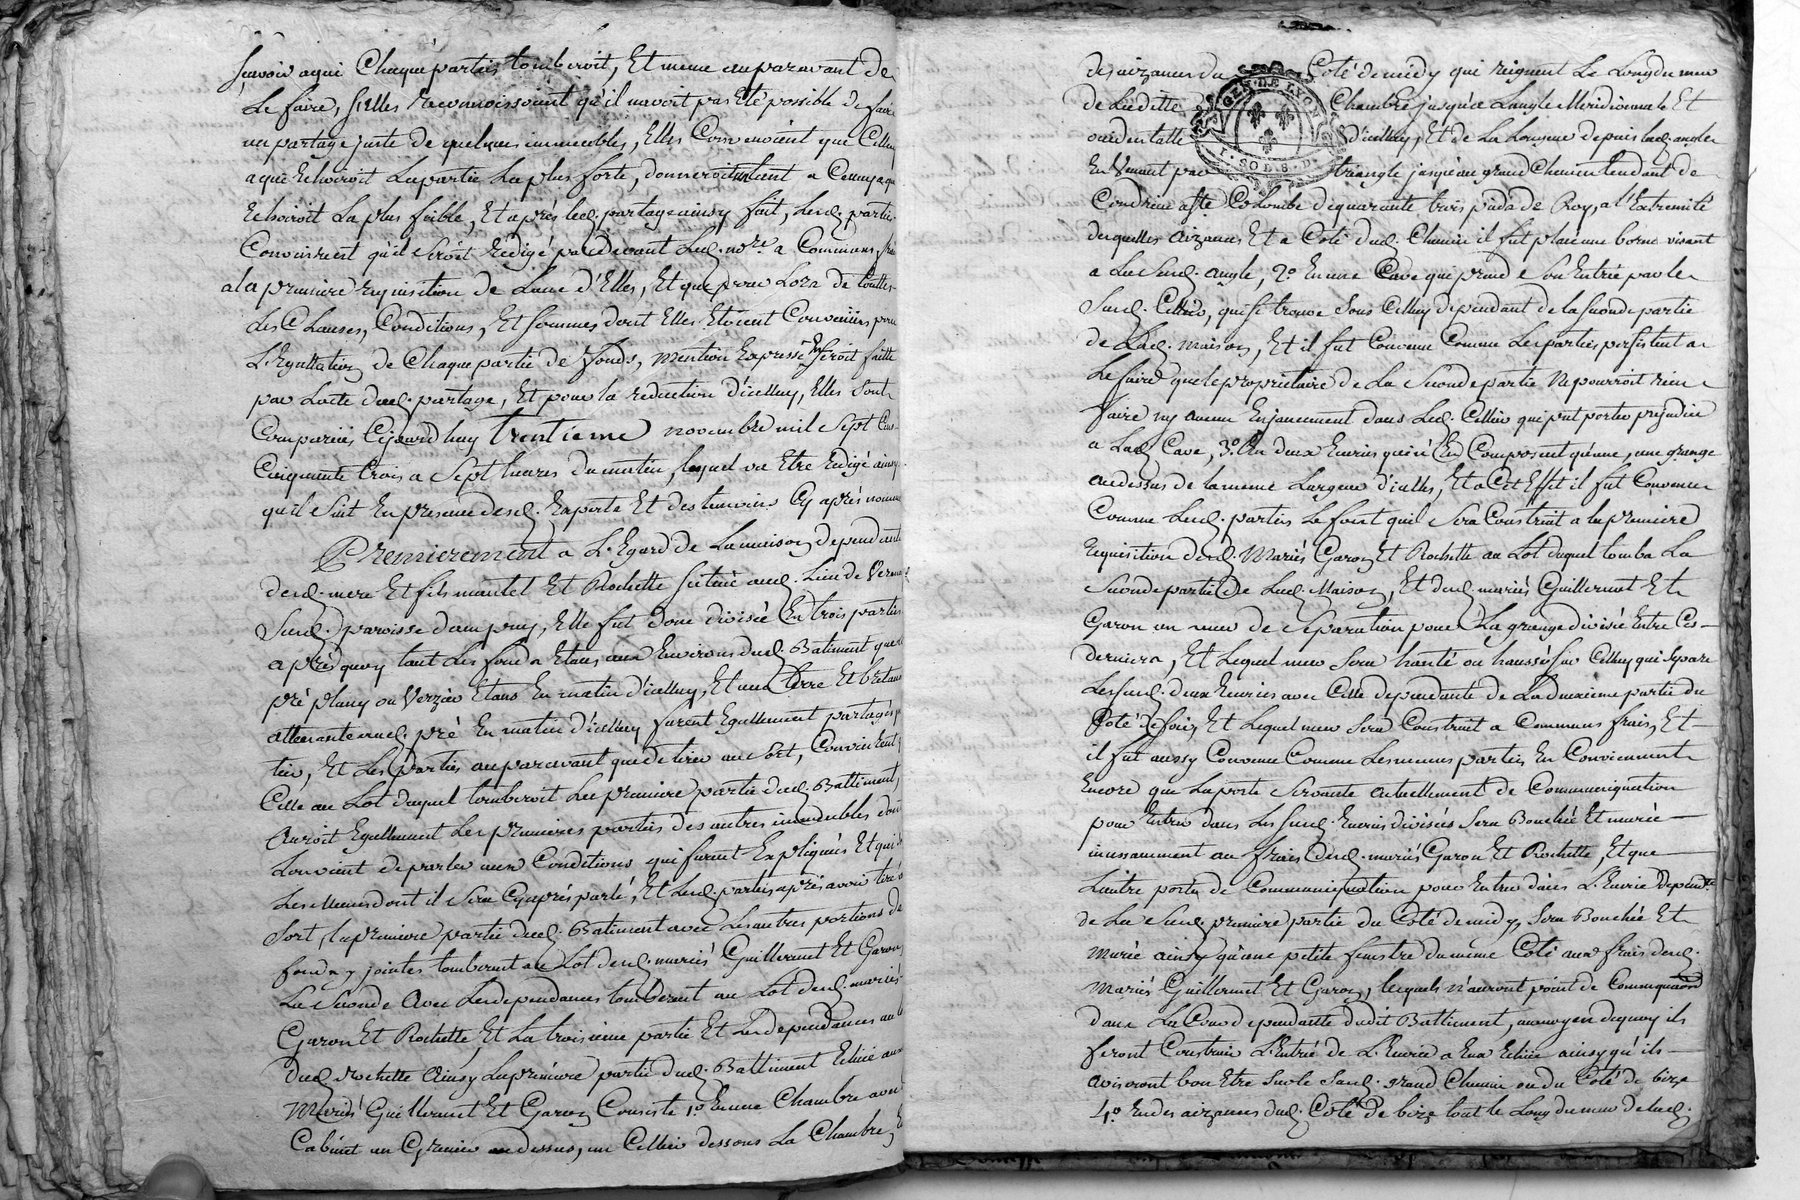 scavoir a qui Chaque parties tomberoit, Et meme auparavant de
Le faire, Elles reconnoissoient qu'il n'avoit pas Eté possible de faire
un partage juste de quelques immeubles, Elles Convenoient que Celluy
a qui Echoiroit La partie La plus forte, donneroit tant a Celluy a qui
Echoiroit La plus foible, Et aprés led. partage ainsy fait, Lesd. parties
Convinrent qu'il seroit rédigé pardevant Led. no.re a Communs frais
a la premiere requisition de L'une d'Elles, Et que pour Lors de touttes
Les Clauses, Conditions, Et sommes dont Elles Etoient Convenües pour
L'Egallation de Chaque partie de fonds, mention Expresse En seroit faitte
par L'acte dud. partage, Et pour la redaction d'icelluy, Elles sont
Comparües Cejourd'huy trentieme novembre mil sept Cens
Cinquante trois a sept heures du matin, lequel va Etre redigé ainsy
qu'il suit En presence desd. Experts Et des temoins Cy aprés nommés
Premierement a L'Egard de La maison dependante
desd. mere Et fils mantel Et Rochette scituée aud. Lieu de Verenay
susd. paroisse dampuy, Elle fut donc divisée En trois parties
aprés quoy tant Les fonds Etans aux Environs dud. Batiment que
pré plany ou Verzier Etans En matin d'icelluy, Et une terre Et bretaux
attenante aud. pré En matin d'icelluy furent Egallement partagés
tiers, Et Les parties auparavant que de tirer au sort, Convinrent
Celle au Lot duquel tomberoit La premiere partie dud. Battiment,
auroit Egallement Les premieres parties des autres immeubles dont
L'on vient de parler aux Conditions qui furent Expliquées Et qui
Les memes dont il sera Cyaprés parlé, Et Lesd. parties aprés avoir tiré
sort, la premiere partie dud. Batiment avec Les autres portions de
fonds y jointes tomberent au Lot desd. mariés Guillermet Et Garon,
La seconde avec Les dependances tomberent au Lot desd. mariés
Garon Et Rochette, Et La troisieme partie Et Les dependances au
dud. Rochette Ainsy La premiere partie dud. Battiment Echüe aux
Mariés Guillermet Et Garon Consiste 1.o En une Chambre avec
Cabinet un Grenier au dessus, un Cellier dessous La Chambre,
des aizances du Coté de midy qui reignent Le Long du mur
de Laditte Chambre jusqu'a L'angle Meridionnale Et
oardentalle d'icelluy, Et de La Longueur depuis led. angle
En Venant par triangle jusqu'au grand Chemin tendant de
Condrieu a Ste Colombe de quarante trois pieds de Roy, a l'Extremité
desquelles aizances Et a Coté dud. Chemin il fut placé une borne visant
a La susd. angle, 2.o En une Cave qui prend son Entrée par le
susd. Cellier, qui se trouve sous Celluy dependant de la seconde partie
de Lad. maison, Et il fut Convenu Comme Les parties persistent a
Le faire que le proprietaire de La seconde partie Ne pourroit rien
faire ny aucun Enjancement dans Led. Cellier qui put porter prejudice
a Lad. Cave, 3.o En deux Ecuries qui n'En Composent qu'une, une grange
au dessus de la meme Largeur d'icelles, Et a Cet Effet il fut Convenu
Comme Lesd. parties Le font quil sera Construit a la premiere
requisition desd. Mariés Garon Et Rochette au Lot duquel tomba La
seconde partie de Lad. Maison, Et desd. mariés Guillermet Et
Garon un mur de separation pour La grange divisée Entre Ces
derniers, Et Lequel mur sera hanté ou haussé sur Celluy qui separe
Les susd. deux Ecuries avec Celle dependante de La deuxieme partie du
Coté de soir, Et Lequel mur sera Construit a Communs frais, Et
il fut aussy Convenu Comme Les memes parties En Conviennent
Encore que La porte servante actuellement de Communiquation
pour Entrer dans Les susd. Ecuries divisées sera Bouchée Et murée
incessamment au frais desd. mariés Garon Et Rochette, Et que
L'autre porte de Communiquation pour Entrer dans L'Ecurie dependte
de La susd. premiere partie du Coté de midy, sera Bouchée Et
murée ainsy qu'une petite fenetre du meme Coté aux frais desd.
Mariés Guillermet Et Garon, lesquels n'auront point de Communiquaon
dans La Cour dependante dudit Battiment, au moyen de quoy ils
feront Construire L'Entrée de L'Ecurie a Eux Echüe ainsy qu'ils
aviseront bon Etre sur le susd. grand Chemin ou du Coté de bize
4.o En des aizances dud. Coté de bize tout le Long du mur de lad.
GEN. DE LYON
SO. D. S. D.